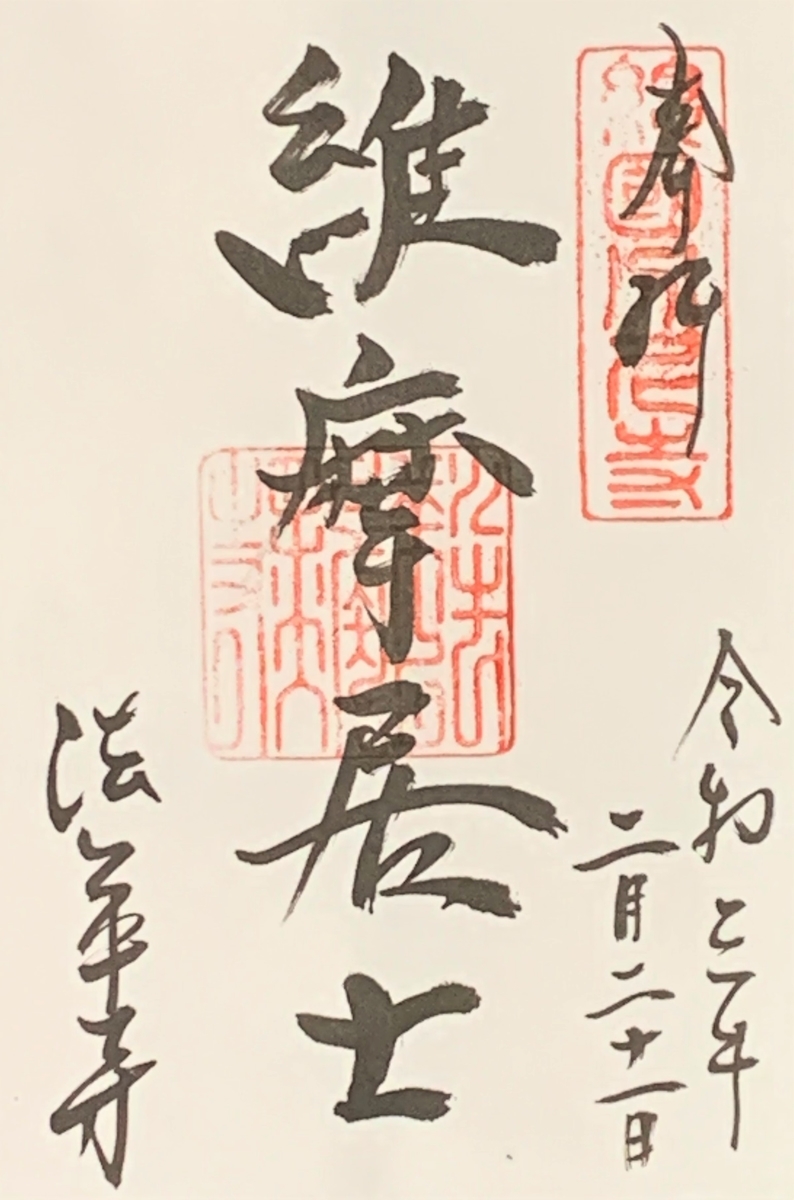 奉拝
令和三年
二月二十一日
維摩居士
法華寺